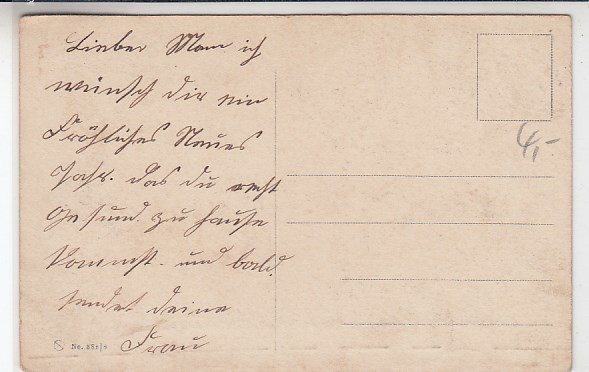 Lieber Mann ich
wünsch dir ein
Fröhliches Neues
Jahr. das du recht
Gesund zu hause
kommst. und bald.
sendet deine
Frau
4,-
S No.